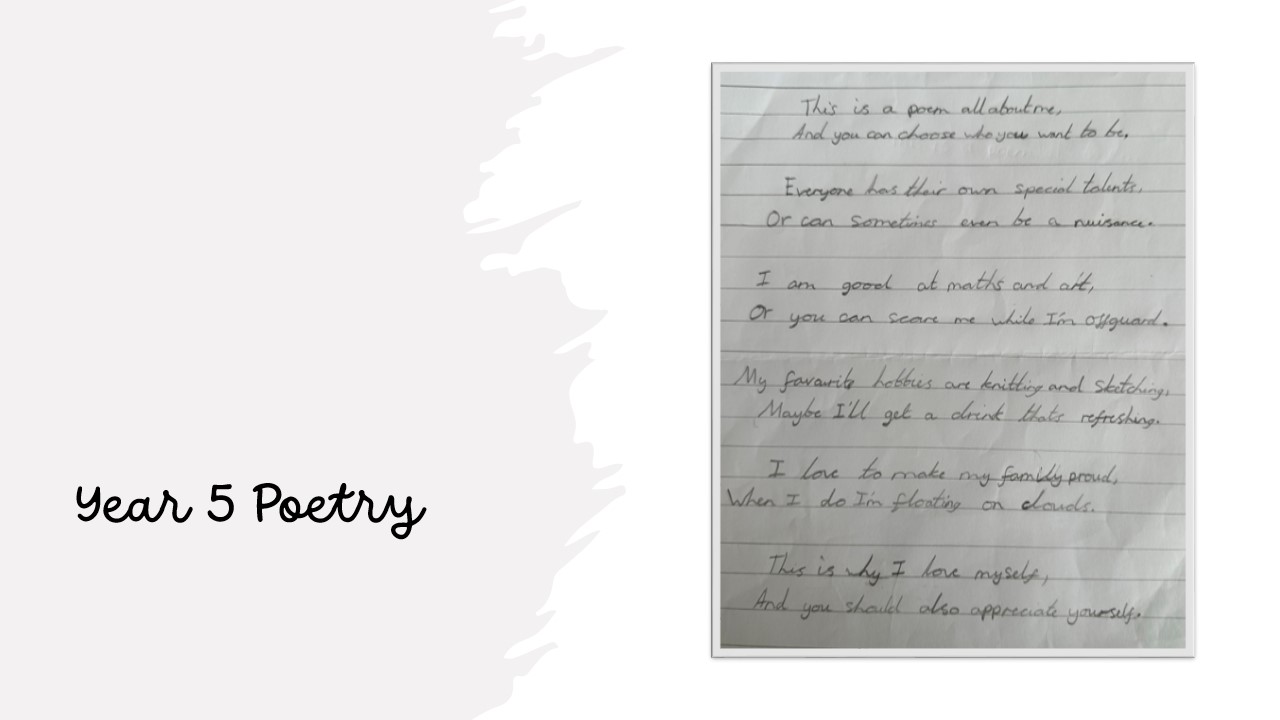 Year 5 Poetry
This is a poem all about me,
And you can choose who you want to be.
Everyone has their own special talents,
Or can sometimes even be a nuisance.
I am good at maths and art,
Or you can scare me while I'm offguard.
My favourite hobbies are knitting and sketching,
Maybe I'll get a drink thats refreshing.
I love to make my family proud,
When I do I'm floating on clouds.
This is why I love myself,
And you should also appreciate yourself.